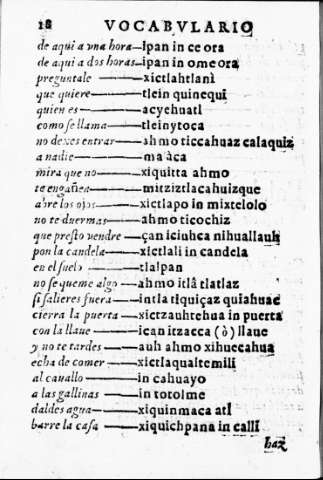 18 VOCABVLARIO
de aqui a vna hora—ipan in ce ora
de aqui a dos horas—ipan in ome ora
preguntale ——xictlahtlanì
que quiere———tlein quinequi
quien es———acyehuatl
como se llama——tleinytoca
no dexes entrar——ahmo ticcahuaz calaquiz
a nadie———ma àca
mira que no———xiquitta ahmo
te engañea———mitziztlacahuizque
abre los ojos———xictlapo in mixtelolo
no te duermas———ahmo ticochiz
que presto vendre—çan iciuhca nihuallauh
pon la candela———xictlali in candela
en el suelo———tlalpan
no se queme algo—ahmo itlâ tlatlaz
si salieres fuera——intla tiquiçaz quiahuac
cierra la puerta—xictzauhtehua in puerta
con la llaue———ican itzacca (ò) llaue
y no te tardes———auh ahmo xihuecahua
echa de comer——xictlaqualtemili
al cauallo———in cahuayo
a las gallinas———in totolme
daldes agua———xiquinmaca atl
barre la casa———xiquichpana in calli
haz